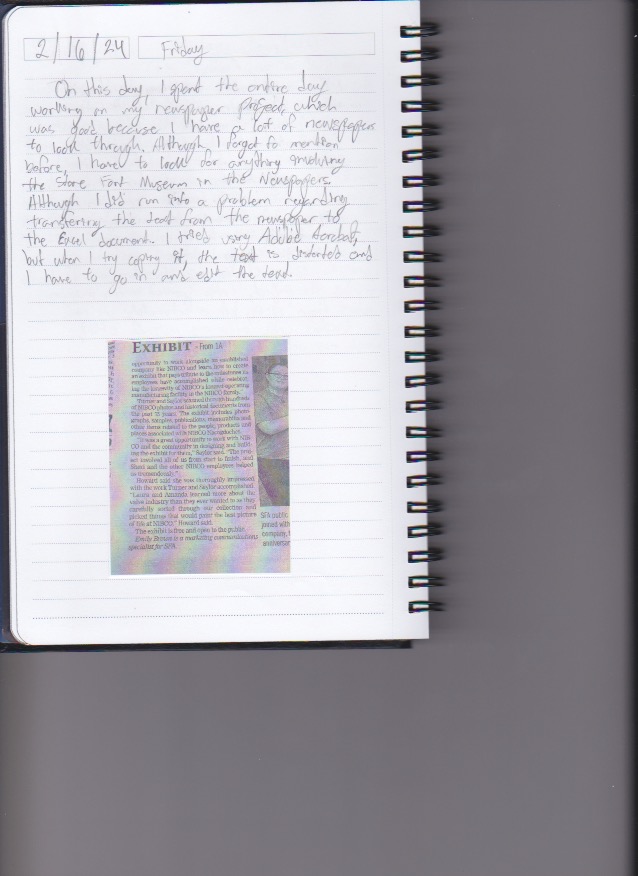 2/16/24
Friday
On this day, I spent the entire day
working on my newspaper project, which
was good because I have a lot of newspapers
to look through. Although I forgot to mention
before, I have to look for anything involving
the Stone Fort Museum in the Newspapers.
Although I did run into a problem regarding
transferring the text from the newspaper to
the Excel document. I tried using Adobe Acrobat,
but when I try copying it, the text is distorted and
I have to go in and edit the text.
EXHIBIT - From 1A
opportunity to work alongside an established
company like NIBCO and learn how to create
an exhibit that pays tribute to the milestones its
employees have accomplished while celebrat-
ing the longevity of NIBCO's longest operating
manufacturing facility in the NIBCO family.
Turner and Saylor scanned through hundreds
of NIBCO photos and historical documents from
the past 75 years. The exhibit includes photo-
graphs, samples, publications, memorabilia and
other items related to the people, products and
places associated with NIBCO Nacogdoches.
"It was a great opportunity to work with NIB-
CO and the community in designing and build-
ing the exhibit for them," Saylor said. "The pro-
ject involved all of us from start to finish, and
and the other NIBCO employees helped
us tremendously."
Howard said she was thoroughly impressed
with the work Turner and Saylor accomplished.
"Laura and Amanda learned more about the
valve industry than they ever wanted to as they
carefully sorted through our collection and
picked items that would paint the best picture
of life at NIBCO," Howard said.
The exhibit is free and open to the public.
is a marketing communications
specialist for SFA.
SFA public
joined with
company,
anniversar